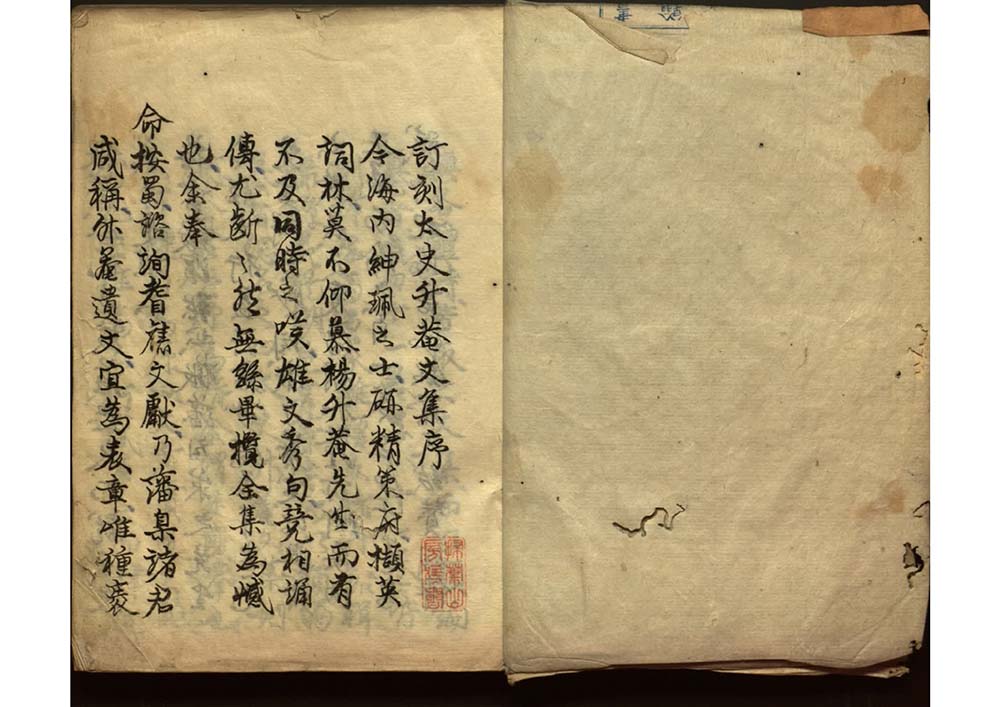 訂刻太史升菴文集序
今海内紳珮之士砺精策府擷英
詞林莫不仰慕楊升菴先生而有
不及同時之嘆雄文秀句競相誦
傳尤斷〻然無緣畢攬全集為憾
也余奉
命按蜀諮詢耆舊文獻乃藩臬諸君
咸稱升菴遺文宜為表章唯種裒
掃葉山
房藏書